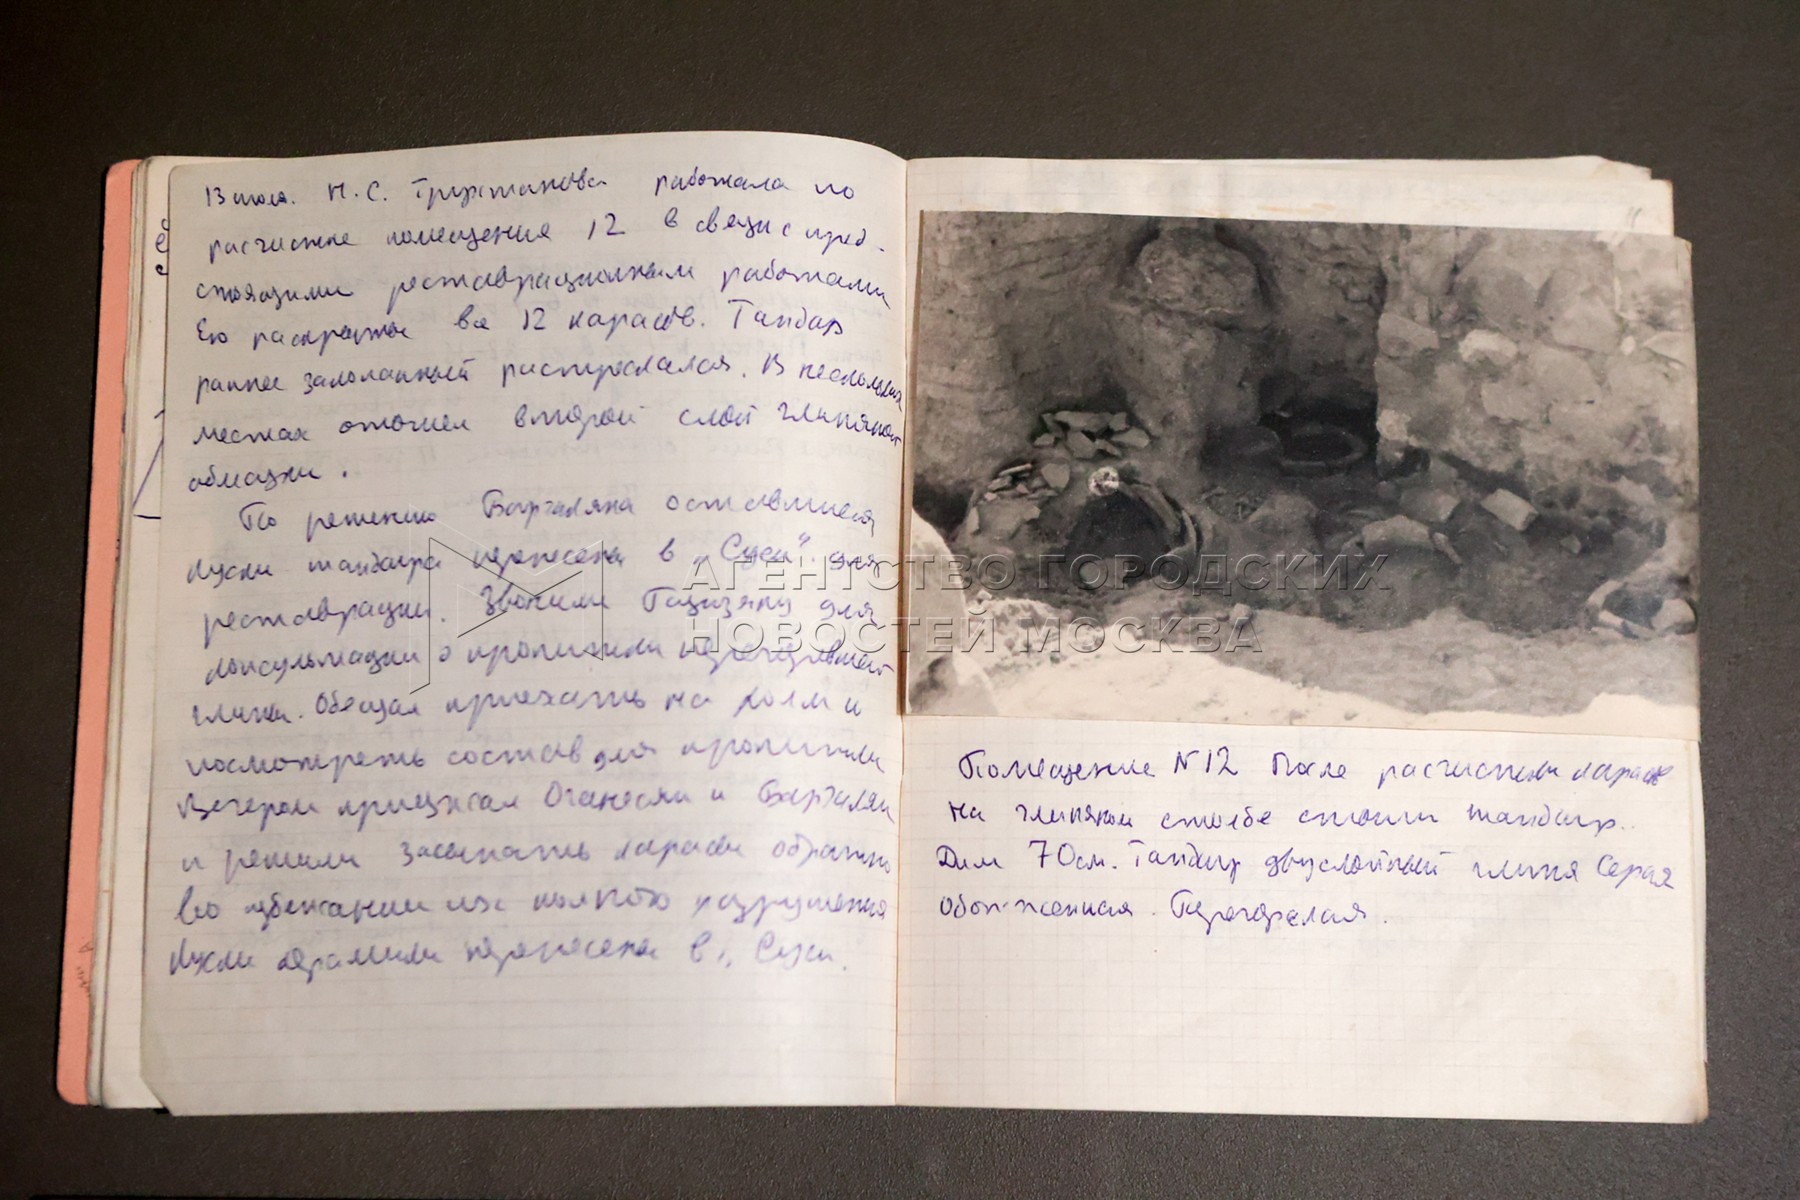 13 июля. Н.С. работала по
расчистке помещения 12 в связи с пред-
стоящими реставрационными работами
Ею раскрыты все 12 карасов. Тандыр
ранее заломанный растрескался. В нескольких
местах отошел второй слой глиняной
обмазки.
По решению оставшиеся
куски тандыра перенесены в „Суси" для
реставрации. Звонили для
консультации о пропитки перегоревшей
глины. Обещал приехать на холм и
посмотреть состав для пропитки
Вечером Оганесян и
и решили засыпать карасы обратно
во избежании их полного разрушения
Куски керамики перенесены в „Суси.
АГЕНТСТВО ГОРОДСКИХ
НОВОСТЕЙ МОСКВА
Помещение N 12 После расчистки карасов
на глиняном столбе стоит тандыр.
Диам 70см. Тандыр двуслойный глина серая
обожженная. Перегорелая.